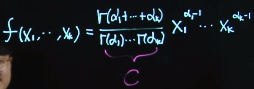 f(x₁,⋯,xₖ) = Γ(α₁+⋯+αₖ) / Γ(α₁)⋯Γ(αₖ) x₁^(α₁-1) ⋯ xₖ^(αₖ-1)
C